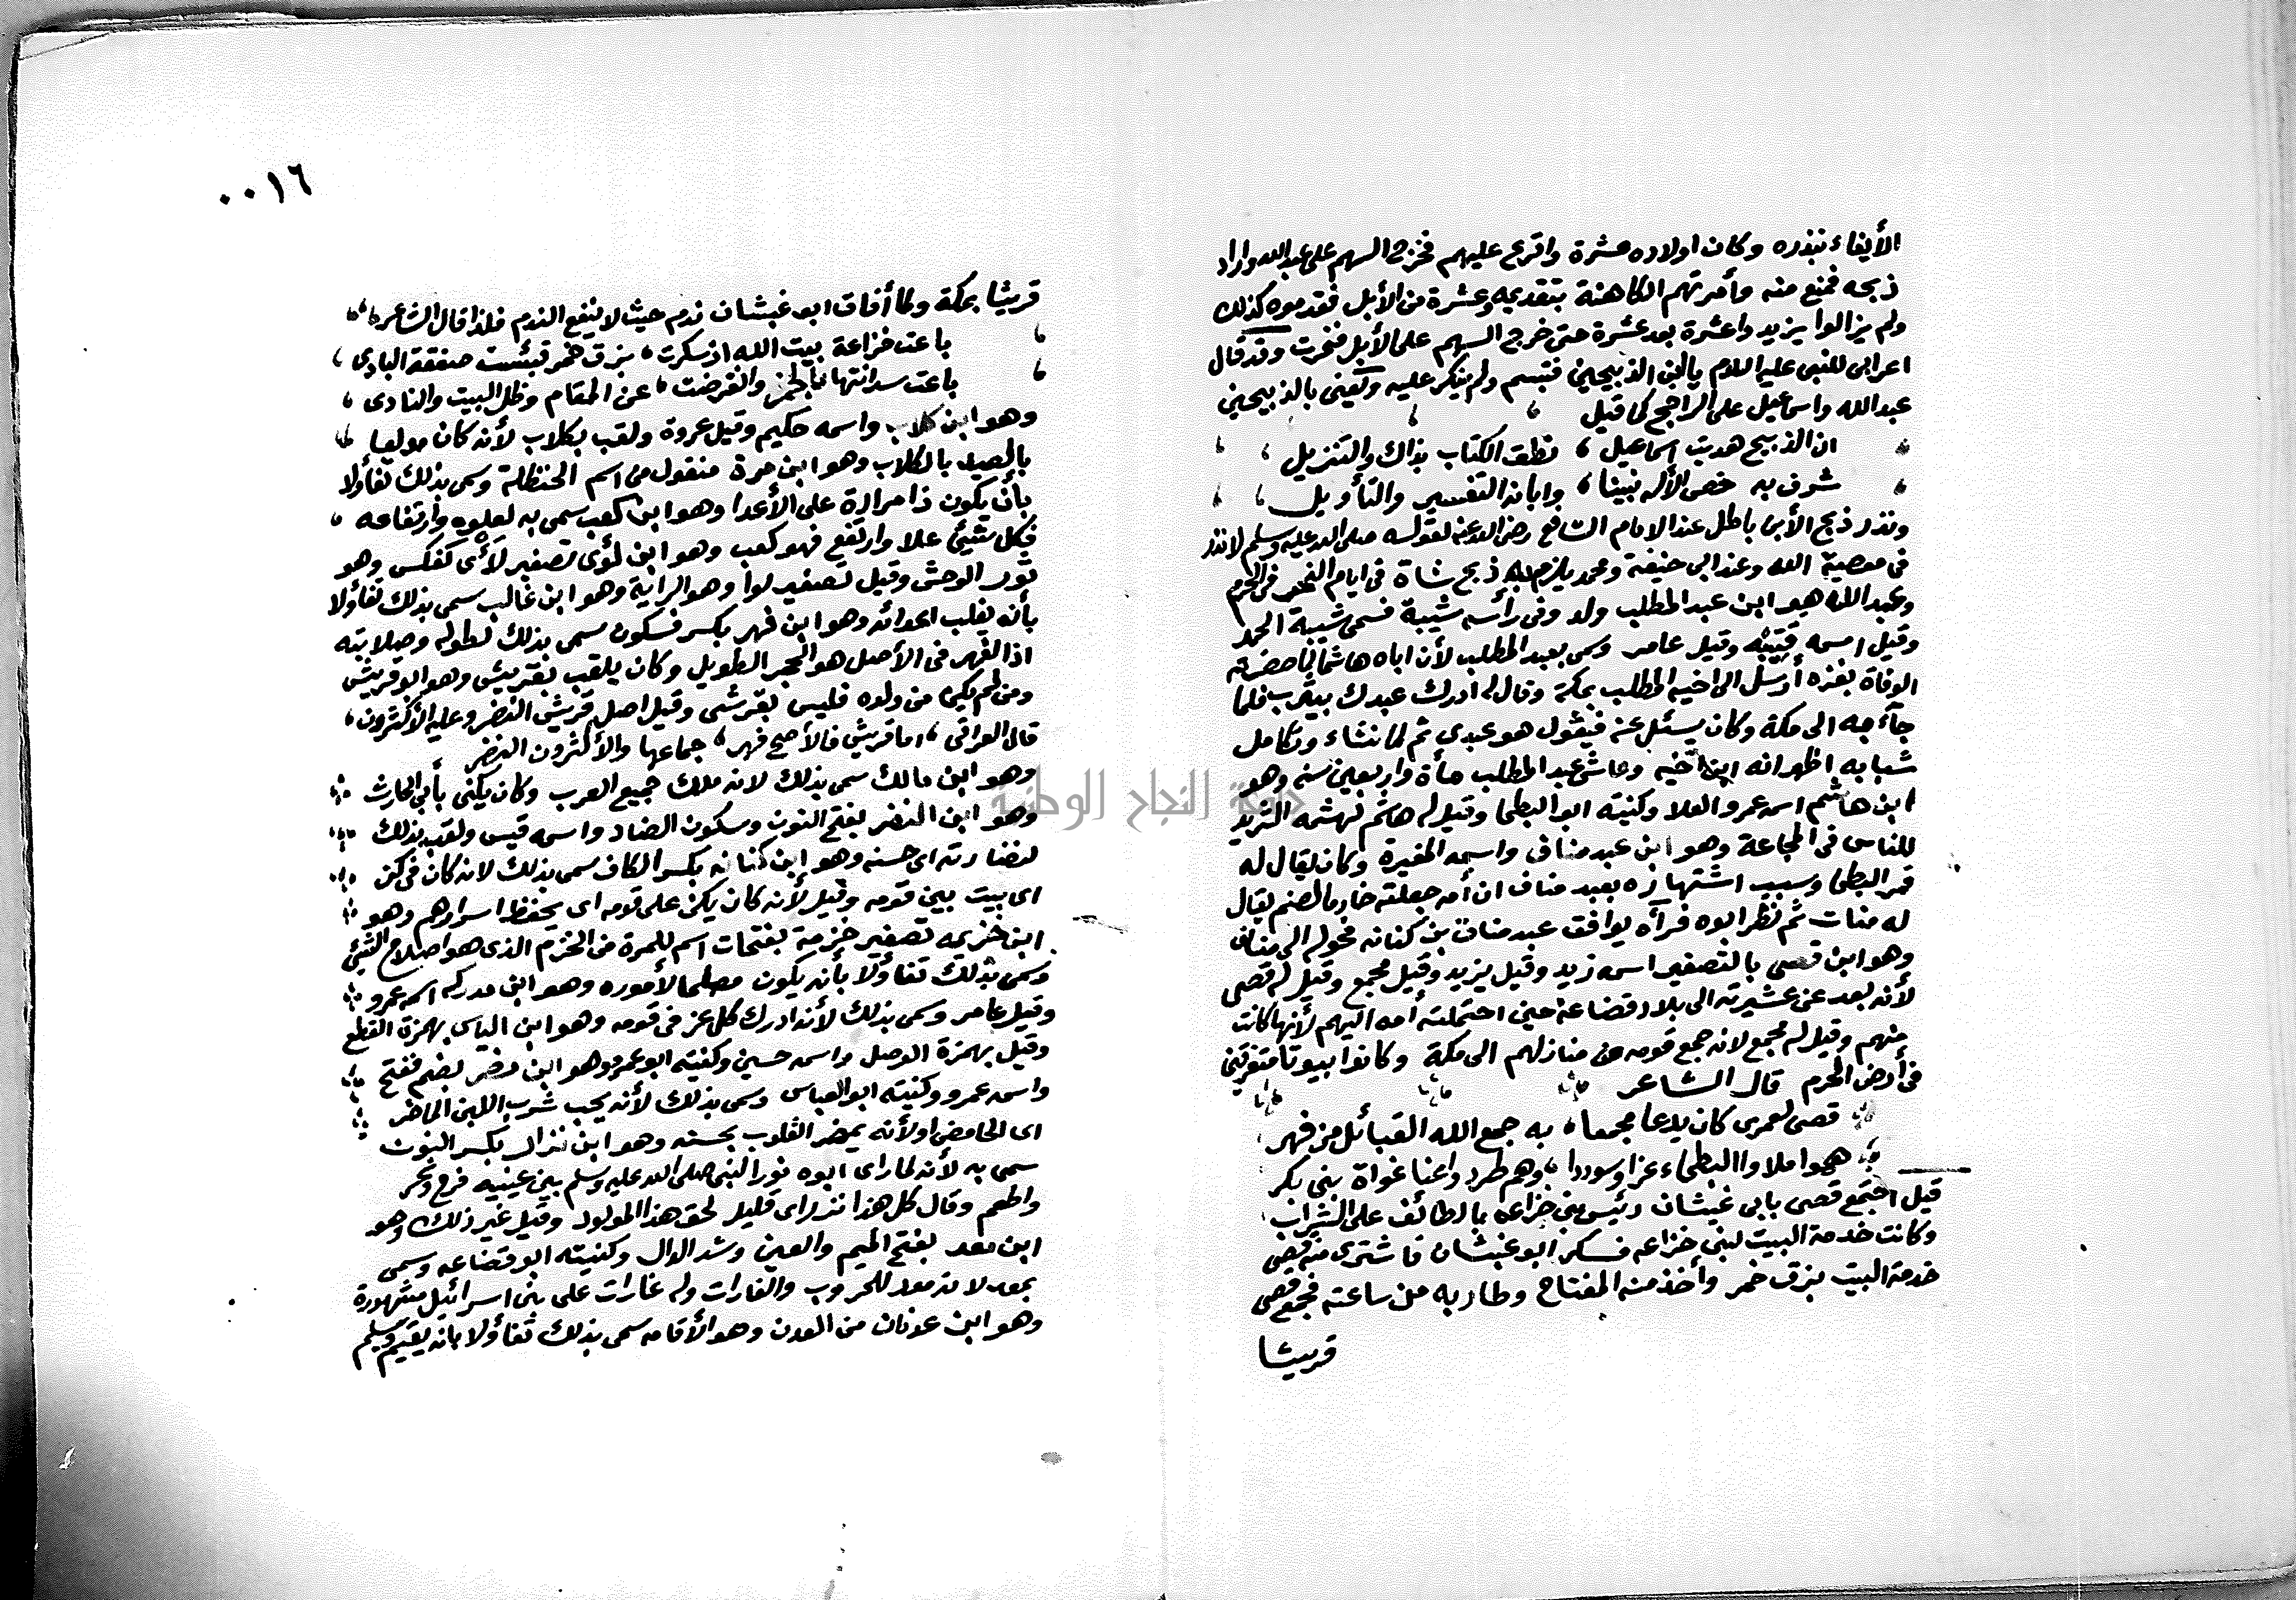 الأيفاء بنذره وكان اولاده عشرة واقرع عليهم فخرج السهم على عبدالله واراد
ذبحه فمنع منه وأمرتهم الكاهنة بتقديمه وعشرة من الأبل فقدموه كذلك
ولم يزالوا يزيدوا عشرة بعد عشرة حتى خرج السهم على الأبل فنحرت وقد قال
اعرابي للنبي عليه السلام يا ابن الذبيحين فتبسم ولم ينكر عليه وتعنى بالذبيحين
عبدالله واسماعيل على الراجح كما قيل
ان الذبيح هديت اسماعيل ، نطق الكتاب بذاك والتنزيل ،
شرف به خص الأله نبينا ، وابانه التفسير والتأويل ،
ونذر ذبح الأبن باطل عند الامام الشافعي رضى الله عنه لقوله صلى الله عليه وسلم لا نذر
فى معصية الله وعند ابى حنيفة ومحمد يلزم به ذبح شاة فى ايام النحر فى الحرم
وعبدالله هو ابن عبد المطلب ولد وفى رأسه شيبة فسمى شيبة الحمد
وقيل اسمه وقيل عامر وسمى بعبد المطلب لأن اباه هاشما لما حضرته
الوفاة بغزه أرسل الى اخيه المطلب بمكة وقال له ادرك عبدك بيثرب فلما
جآء به الى مكة وكان يسئل عنه فيقول هو عبدى ثم لما نشاء وتكامل
شبابه اظهر انه ابن أخيه وعاش عبد المطلب مأة واربعين سنه وهو
ابن هاشم اسمه عمرو العلا وكنيته ابو البطحا وقيل له هاشم لهشمه الثريد
للناس فى المجاعة وهو ابن عبد مناف واسمه المغيرة وكان يقال له
قمر البطحا وسبب اشتهاره بعبد مناف ان أمه جعلته خادما لصنم يقال
له منات ثم نظر ابوه فرأه يوافق عبد مناف بن كنانه فحوله الى مناف
وهو ابن قصى بالتصغير اسمه زيد وقيل يزيد وقيل مجمع وقيل له قصى
لأنه بعد عن عشيرته الى بلاد قضاعة حين احتملته أمه اليهم لأنها كانت
منهم وقيل له مجمع لانه جمع قومه من منازلهم الى مكة وكانوا بيوتا متفرقين
فى أرض الحرم قال الشاعر
قصى لعمرى كان يدعا مجمعا ، به جمع الله القبائل من فهر
هموا ملاوا البطحاء عزا وسوددا ، وهم طردوا عنا غواة بنى بكر
قيل اجتمع قصى بابى غبشان رئيس بنى خزاعه بالطائف على الشراب
وكانت خدمة البيت لبنى خزاعه فسكر ابو غبشان فاشترى منه قصى
خدمة البيت بزق خمر وأخذ منه المفتاح وطار به من ساعته فجمع قصى
قريشا
٠٠١٦
قريشا بمكة ولما أفاق ابو غبشان ندم حيث لا ينفع الندم فلذا قال الشاعر
باعت خزاعة بيت الله اذ سكرت ، بزق خمر فبئست صفقة البادى ،
باعت سدانتها بالخمز وانقرضت ، عن المقام وظل البيت والنادى ،
وهو ابن كلاب واسمه حكيم وقيل عروة ولقب بكلاب لأنه كان مولعا
بالصيد بالكلاب وهو ابن مرة منقول من اسم الحنظلة وسمى بذلك تفأولا
بأن يكون ذا مرارة على الأعدا وهو ابن كعب سمى به لعلوه وارتفاعه
فكل شيئ علا وارتفع فهو كعب وهو ابن لؤى تصغير لأى كفلس وهو
ثور الوحش وقيل تصغير لوا وهو الراية وهو ابن غالب سمى بذلك تفأولا
بأنه يغلب اعدائه وهو ابن فهر بكسر فسكون سمى بذلك لطوله وصلابته
اذا الفهر فى الأصل هو الحجر الطويل وكان يلقب بقريش وهو ابو قريش
ومن لم يكن من ولده فليس بقرشى وقيل اصل قريش النضر وعليه الأكثرون ،
قال العراقى ، اما قريش فالأصح فهر ، جماعها والأكثرون النضر
وهو ابن مالك سمى بذلك لانه ملك جميع العرب وكان يكنى بأبى الحارث
وهو ابن النضر بفتح النون وسكون الضاد واسمه قيس ولقب بذلك
لنضارته اى حسنه وهو ابن كنانه بكسر الكاف سمى بذلك لانه كان فى كن
اى بيت بين قومه وقيل لأنه كان يكن على قومه اى يحفظ اسرارهم وهو
ابن خزيمه تصغير خزمة بفتحات اسم للمرة من الخزم الذى هو اصلاح الشئ
وسمى بذلك تفأولا بأنه يكون مصلحا لأموره وهو ابن مدركه اسمه عمرو
وقيل عامر وسمى بذلك لأنه ادرك كل عز فى قومه وهو ابن الياس بهمزة القطع
وقيل بهمزة الوصل واسمه حسين وكنيته ابو عمرو وهو ابن مضر بضم ففتح
واسمه عمرو وكنيته ابو العباس وسمى بذلك لأنه يحب شرب اللبن الماضر
اى الحامض اولأنه يمضر القلوب بحسنه وهو ابن نزار بكسر النون
سمى به لأنه لما راى ابوه نور النبى صلى الله عليه وسلم بين عينيه فرح ونحر
واطعم وقال كل هذا نزر اى قليل لحق هذا المولود وقيل غير ذلك وهو
ابن معد بفتح الميم والعين وشد الدال وكنيته ابو قضاعه وسمى
بمعد لانه معد للحروب والغارات وله غارات على بنى اسرائيل مشهورة
وهو ابن عدنان من العدن وهو الأقامه سمى بذلك تفأولا بانه يقيم ويسلم
جامعة النجاح الوطنية